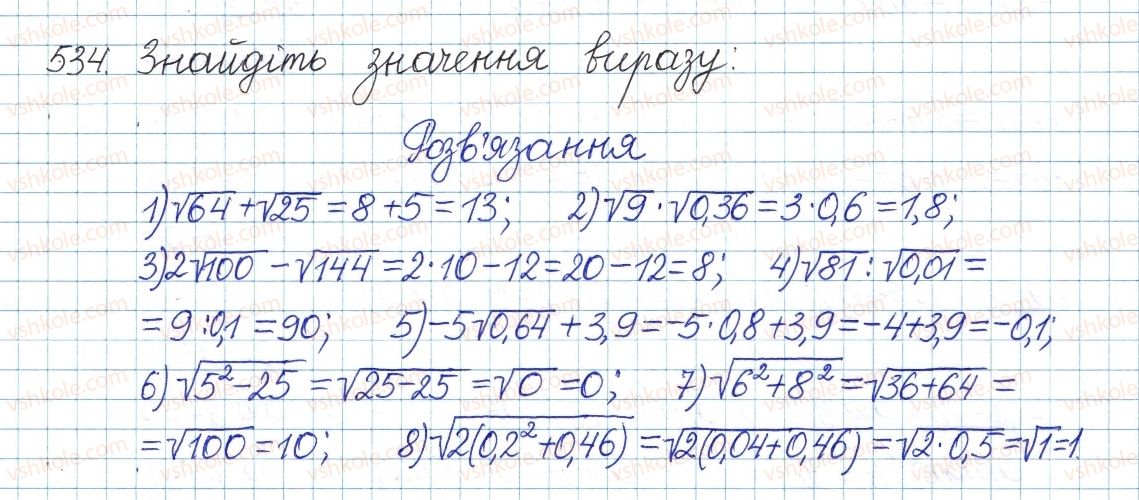 534. Знайдіть значення виразу:
Розв'язання
1) √64 + √25 = 8 + 5 = 13; 2) √9 · √0,36 = 3 · 0,6 = 1,8;
3) 2√100 − √144 = 2 · 10 − 12 = 20 − 12 = 8; 4) √81 : √0,01 =
= 9 : 0,1 = 90; 5) −5√0,64 + 3,9 = −5 · 0,8 + 3,9 = −4 + 3,9 = −0,1;
6) √(5² − 25) = √(25 − 25) = √0 = 0; 7) √(6² + 8²) = √(36 + 64) =
= √100 = 10; 8) √(2(0,2² + 0,46)) = √(2(0,04 + 0,46)) = √(2 · 0,5) = √1 = 1.
vshkole.com